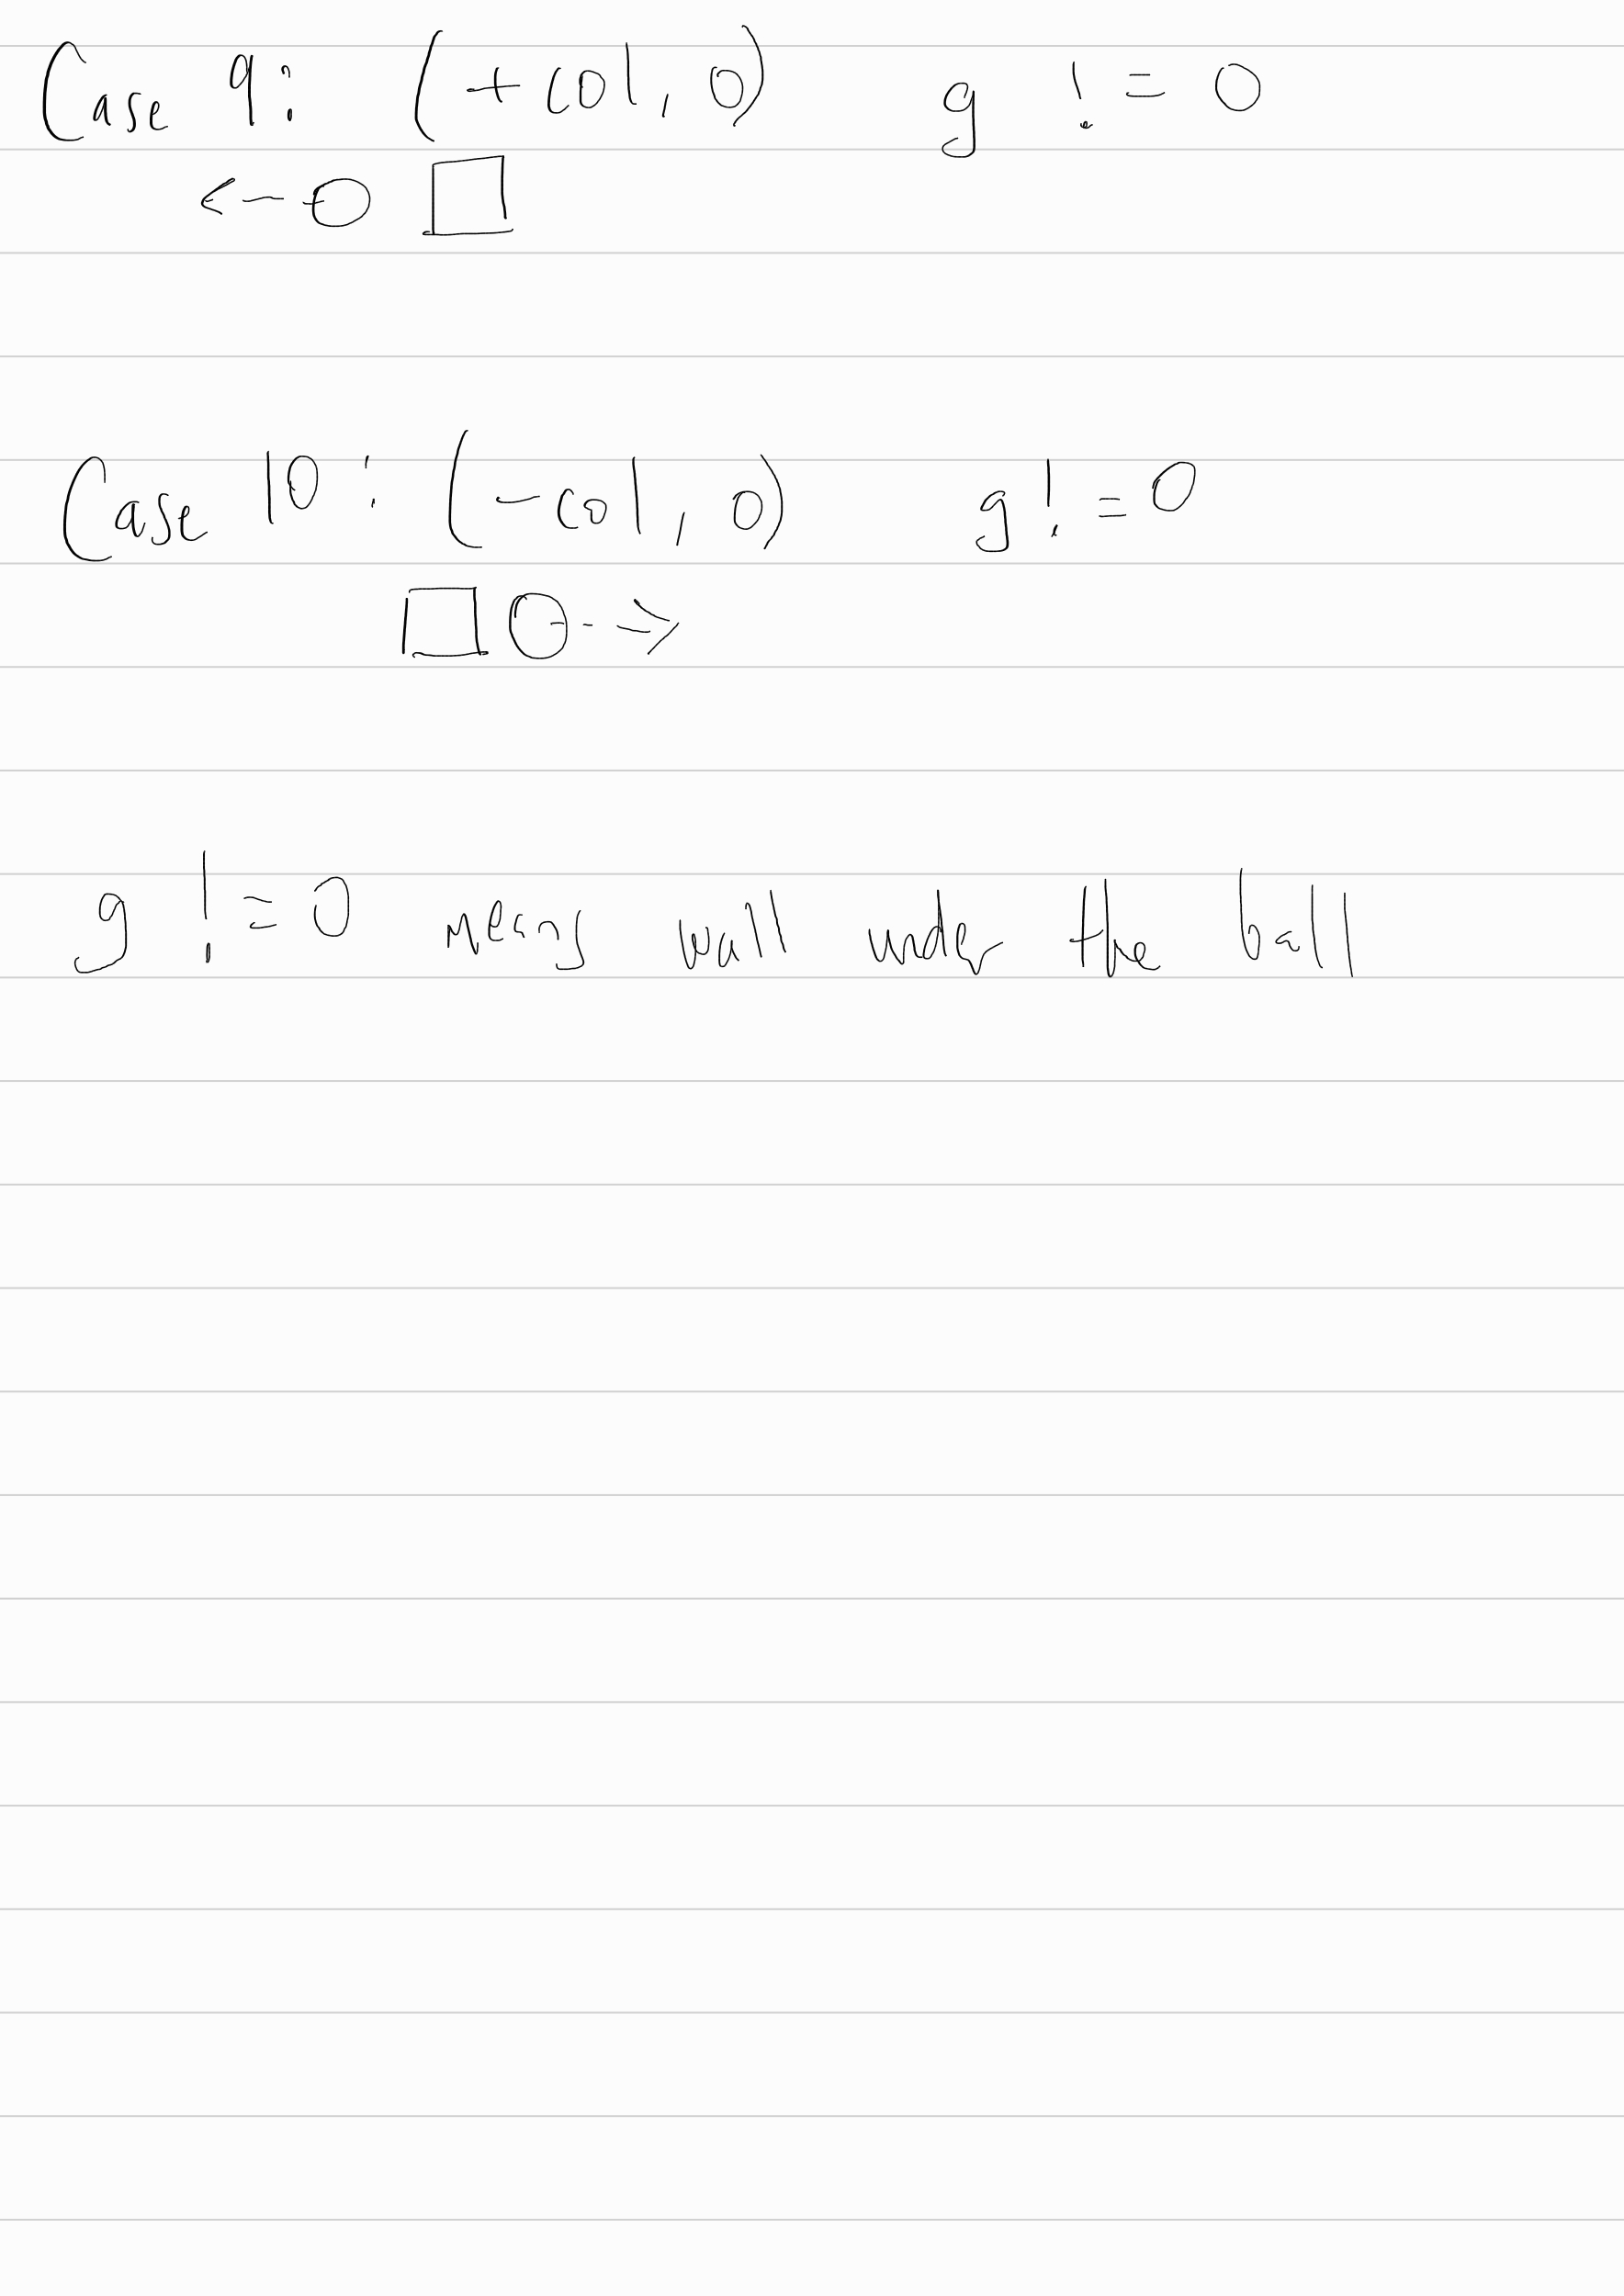 Case 9: (+col, 0) g != 0
Case 10: (-col, 0) g != 0
g != 0 means wall under the ball